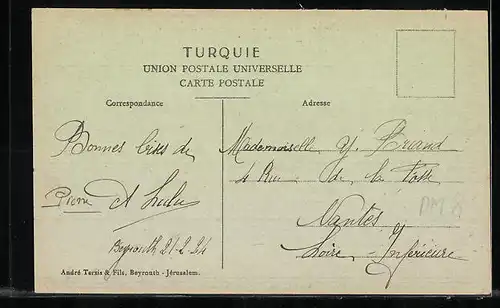 TURQUIE
UNION POSTALE UNIVERSELLE
CARTE POSTALE
Correspondance
Adresse
Bonnes bises de
Pierre et Lulu
Beyrouth 21-2-24
Mademoiselle Y. Briand
4 Rue de la Fosse
Nantes
Loire-Inférieure
André Terzis & Fils, Beyrouth - Jérusalem.